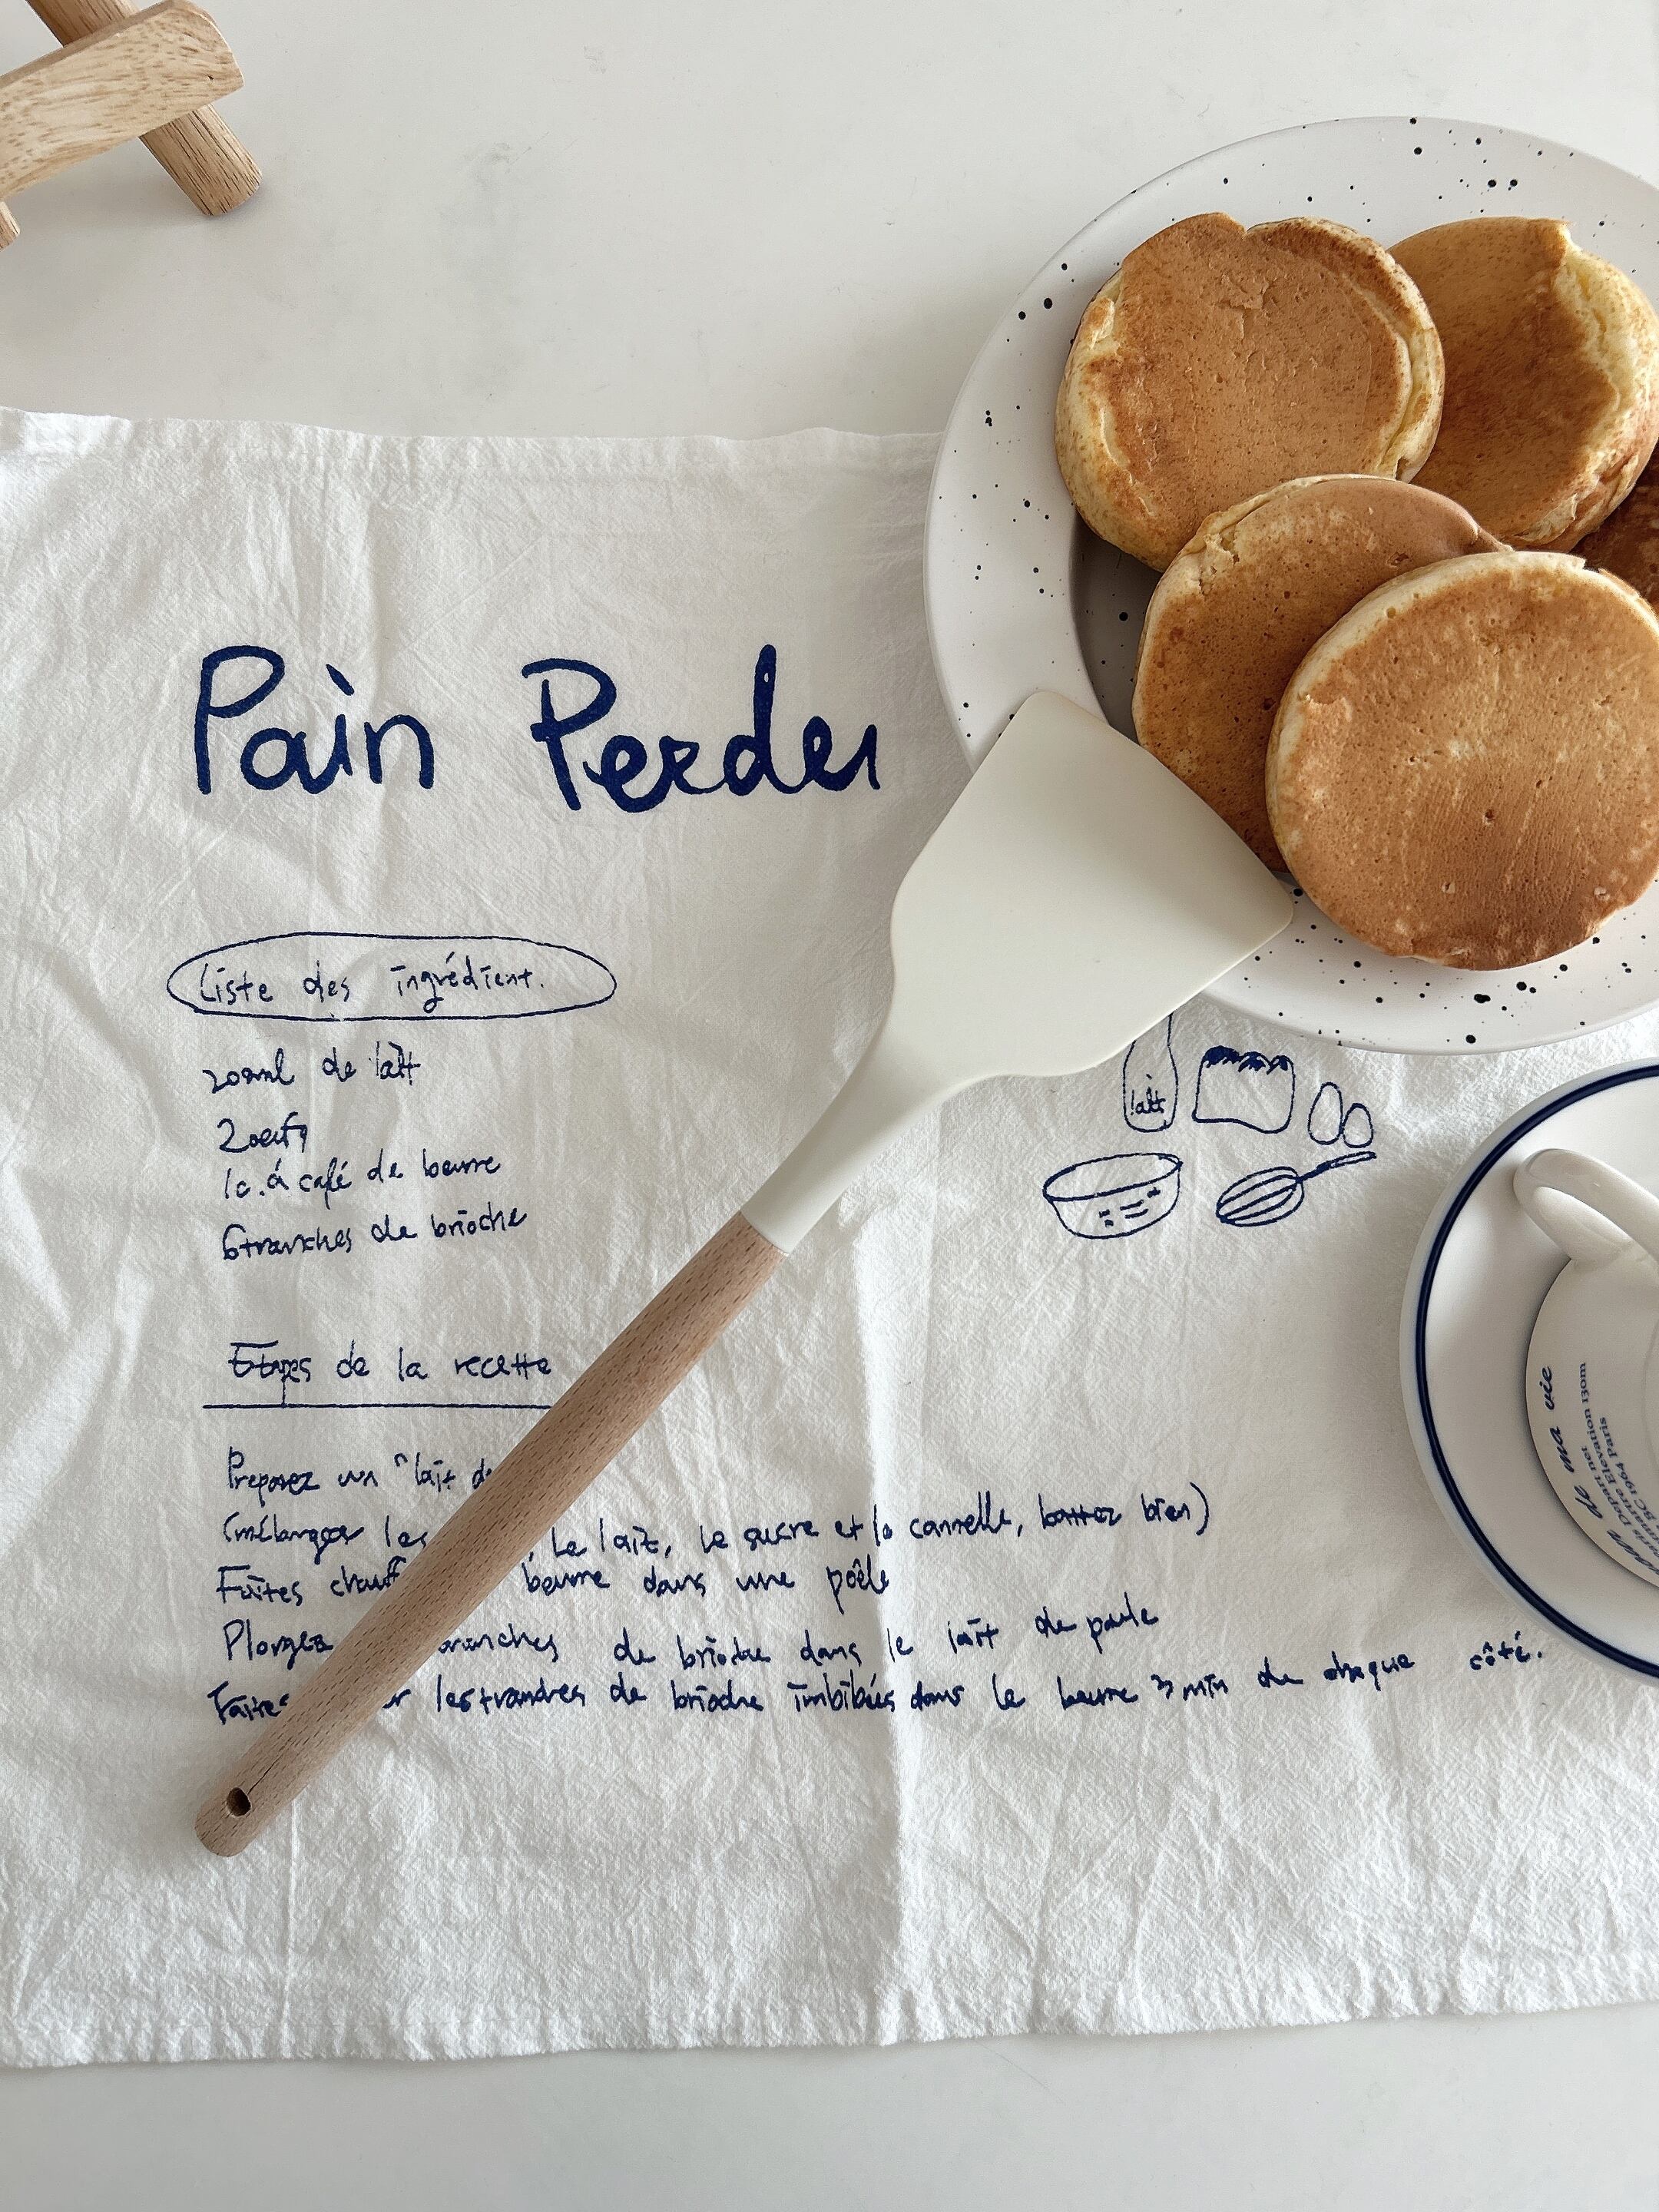 Pain Perdu
Liste des ingrédient.
200ml de lait
2 oeufs
1c.à café de beurre
6 tranches de brioche
Etapes de la recette
Preparez un "lait de
(mélangez les , Le lait, le sucre et la cannelle, battez bien)
Faites chauff beurre dans une poêle
Plongez ranches de brioche dans le lait de poule
Faites r les tranches de brioche imbibées dans le beurre 3 min de chaque côté.
lait
de ma vie